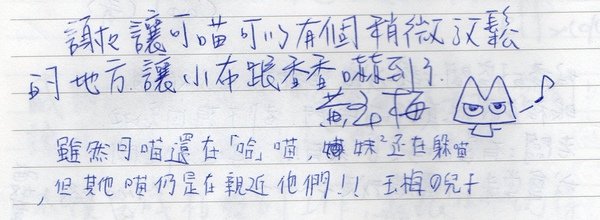 謝啦 讓可喵可以有個稍微放鬆
的地方.讓小布跟香香嚇到了.
黃玉梅
雖然可喵還在「哈」喵, 妹²还在躲喵
,但其他喵仍是在親近他們!! 玉梅の兒子